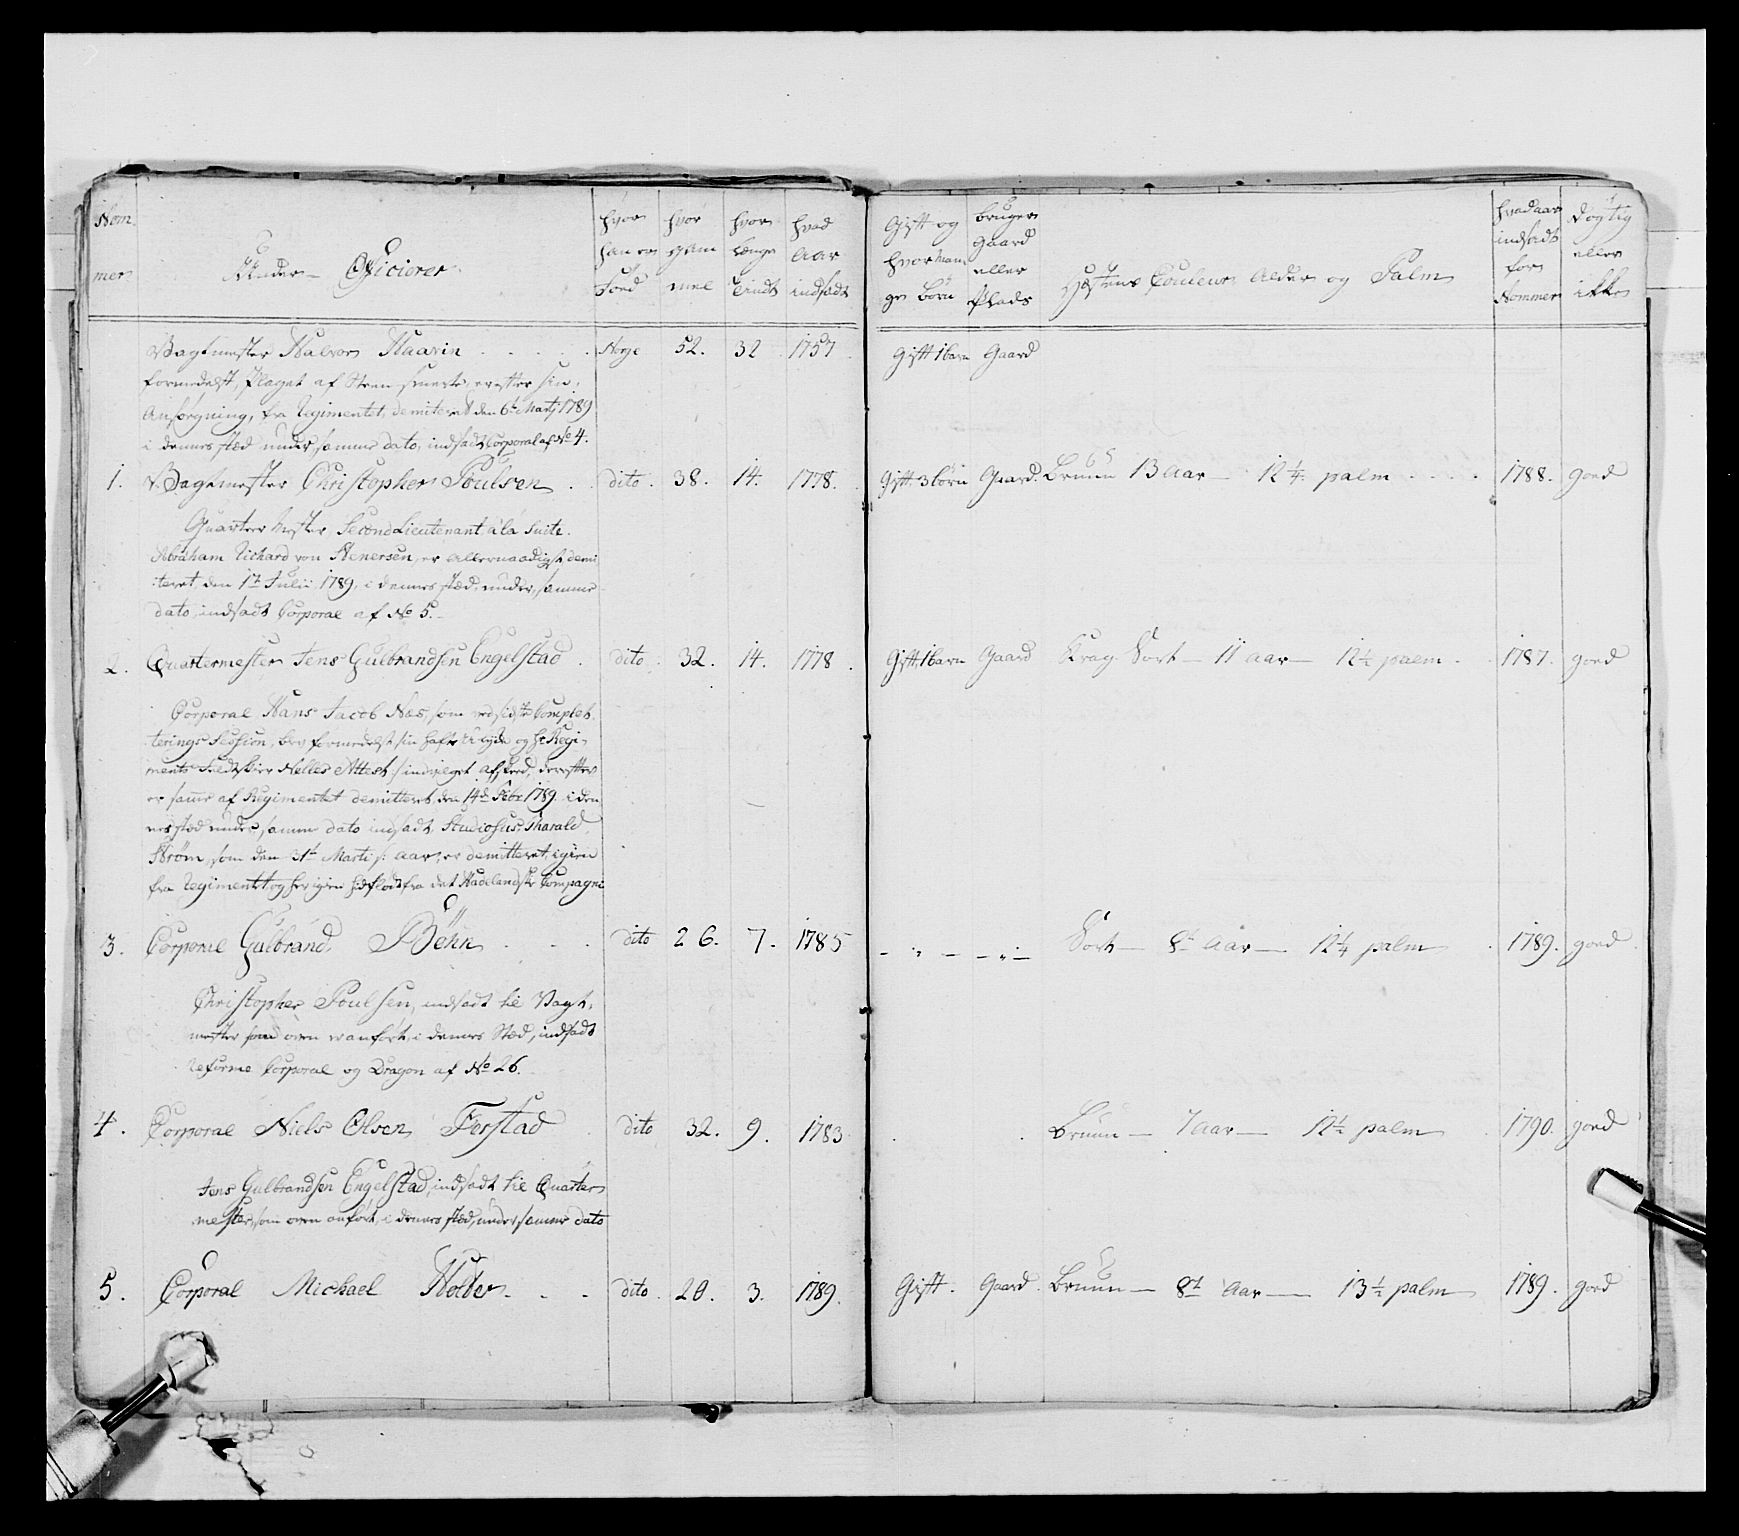 Nom
mer
Under- Officierer
hvor
han er
Foed
hvor
gam
mel
hvor
længe
tient
hvad
aar
indsadt
Gift og
hvor man
ge Börn
bruger
gaard
eller
Plads
Hestens Couleur Alder og Palm
hvad aar
indsadt
for
Nommer
dögtig
eller
ikke
Vagtmester Halvor Haarin Norge 52. 32 1757 Gift 1 barn Gaard
formedelst, Plaget af Steen smerte, er efter sin
Ansögning, fra Regimentet, demiteret den 6t Martj 1789
i dennes stæd under samme dato, indsadt Corporal af No 4.
1. Vagtmester Christopher Poulsen dito. 38. 14. 1778. Gift 3 börn Gaard. Bruun 13 Aar 12 1/4 palm 1788. goed
Quarteer Mester, Second Lieutenant à la Suite
Abraham Richard von Stenersen, er allernaadigst demi
teret den 1t Julii 1789, i dennes stæd, under samme
dato, indsadt Corporal af No 5.
2. Quartermester Jens Gulbrandsen Engelstad dito. 32. 14. 1778. Gift. 1 barn Gaard Krag. Sort 11 aar 12 1/2 palm 1787. goed
Corporal Hans Jacob Næs, som ved sidste Complet
terings Session, blev formedelst sin hafte og Hr Regi
ments Feldtskier Nelles Attest indvilget afskeed, derefter
er samme af Regimentet demitteret, den 14de Febr 1789. i den
nes stæd under samme dato indsadt Studiosus Harald
Ström, som den 31t Marti s. aar, er demitteret, igien
fra Regimentet og her igien fra det Hadelandske Compagni
3. Corporal Gulbrand Behn dito 26. 7. 1785 Sort 8t Aar 12 1/4 palm 1789. goed
Christopher Poulsen, indsadt til Vagt
mester som oven er anfört, i dennes Stæd, indsadt
reforme Corporal og Dragon af No 26.
4. Corporal Niels Olsen Ferstad dito 32. 9. 1783 Bruun 7 aar 12 1/2 palm 1790. goed
Jens Gulbrandsen Engelstad, indsadt til Quarter
mester, som oven anfört, i dennes stæd, under samme dato
5. Corporal Michael Holter dito. 20. 3. 1789. Gift. Gaard. Bruun 8t Aar 13 1/2 palm 1789. goed